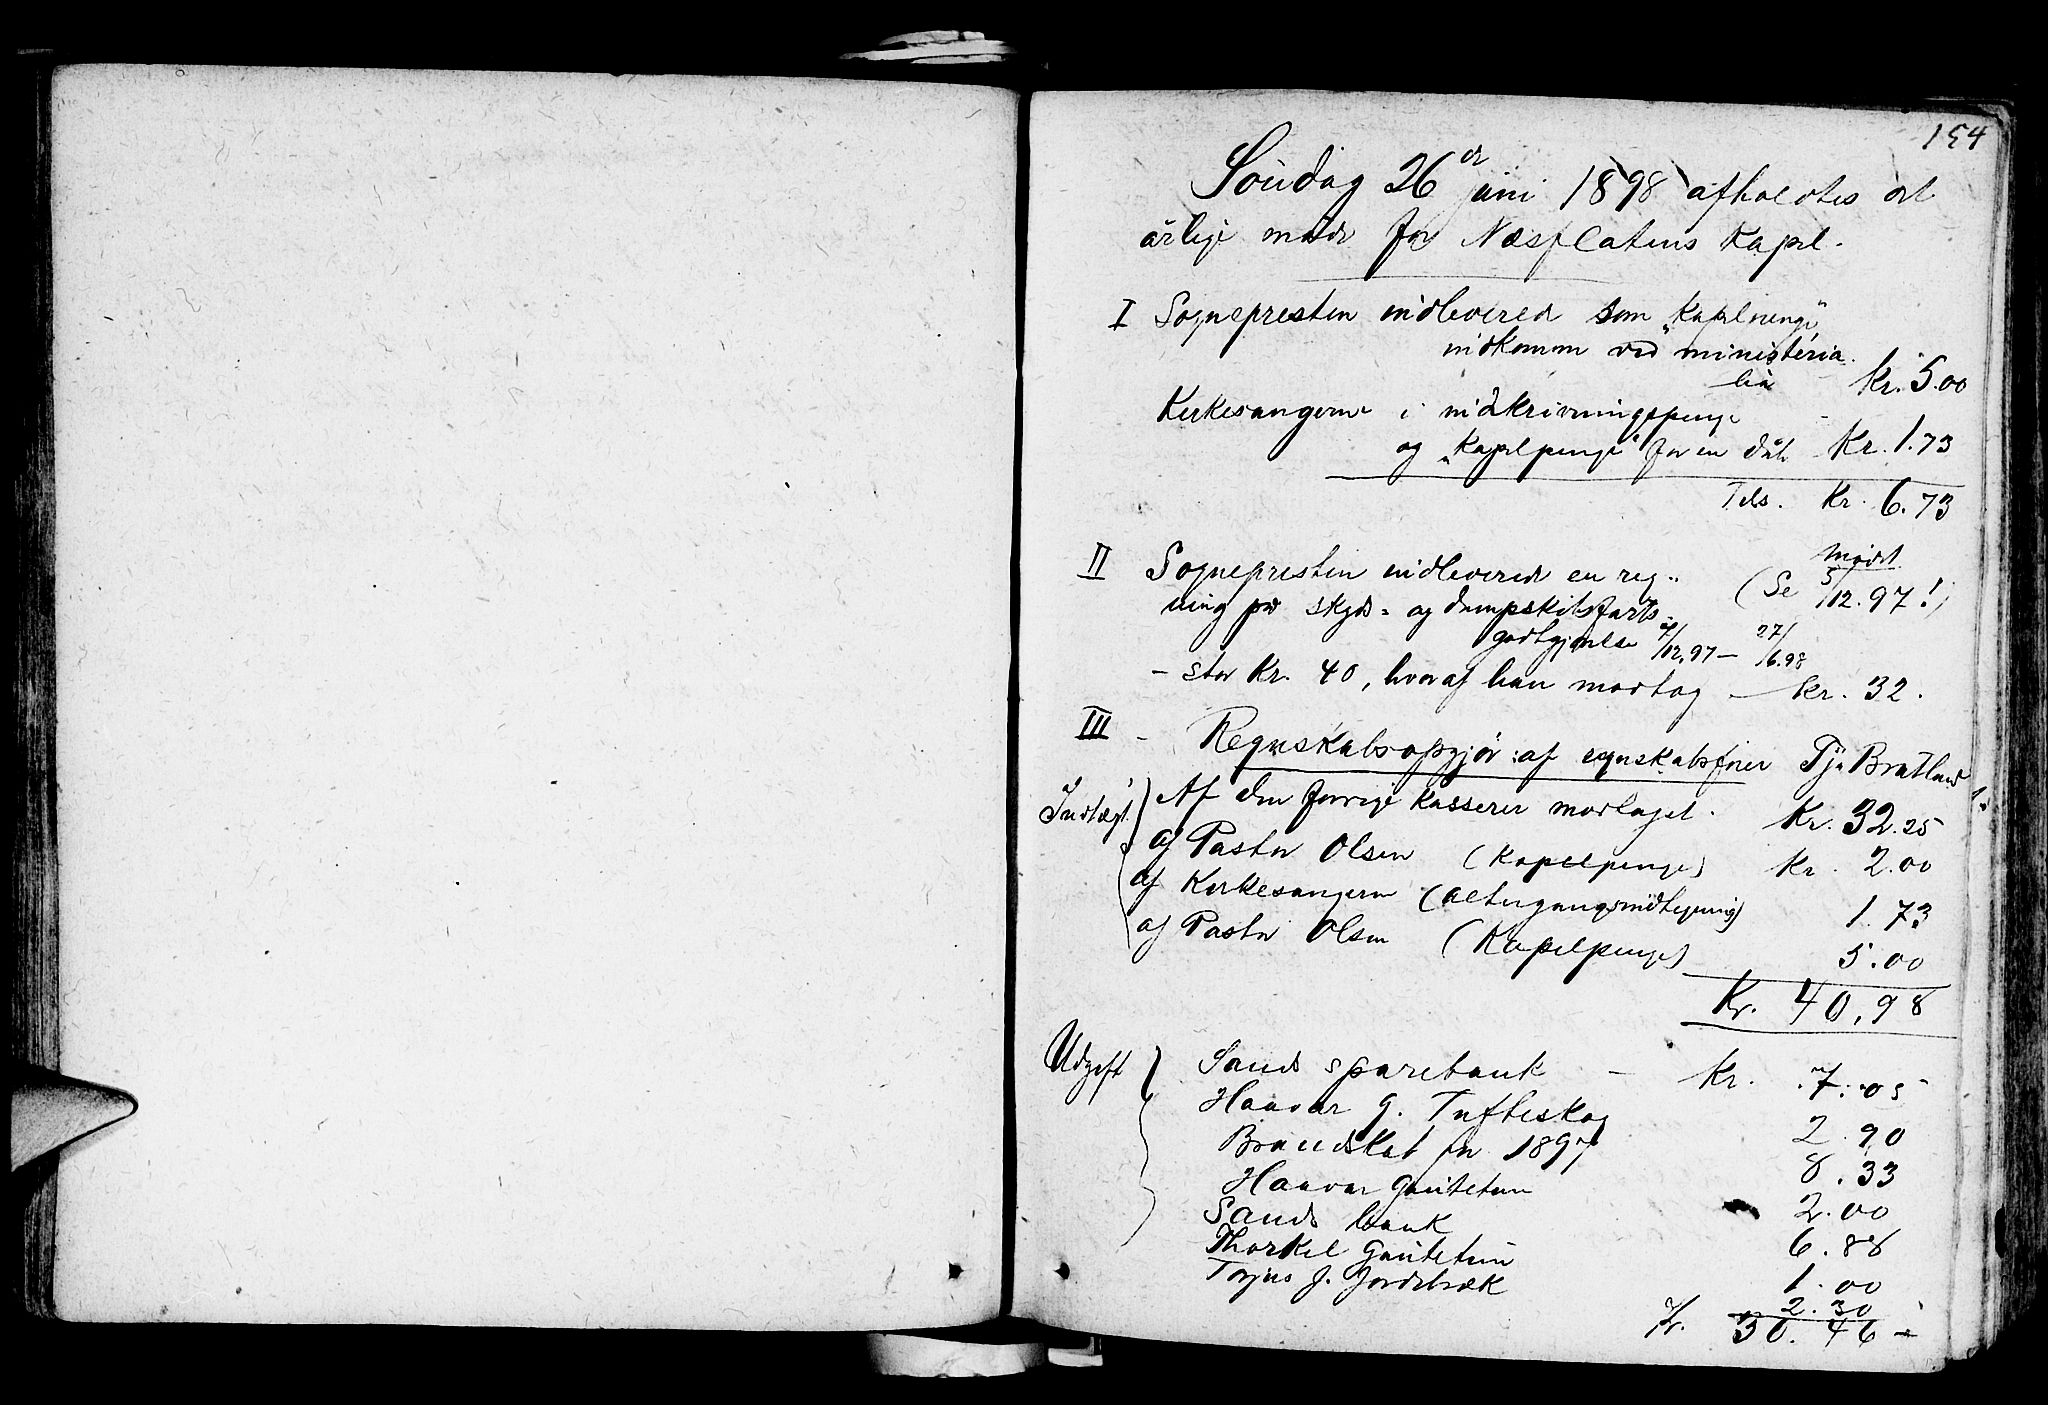 154
Søndag 26de juni 1898 afholdtes det
årlige møde for Næsflatens Kapel.
I Sognepresten indleverede som "Kapelpenge"
indkomm ved ministeria-
lia Kr. 5.00
Kirkesangeren i indskrivningspenge
og "Kapelpenge" for en dåb Kr. 1.73
Tils. Kr. 6.73
II Sognepresten indleverede en reg-
(Se mødet 5/12.97!)
ning på skyds- og dampskibsfarts-
godtgjørelse /12.97 – 27/6.98
– stor Kr. 40, hvoraf han modtog – Kr. 32.
III – Regnskabsopgjør: af regnskabsfører Tj. Bratland
Indtægt. Af den forrige Kasserer modtaget. Kr. 32.25
af Pastor Olsen (Kapelpenge) Kr. 2.00
af Kirkesangeren (altergangsindtegning) 1.73
af Pastor Olsen (Kapelpenge) 5.00
Kr. 40,98
Udgift Sands sparebank – Kr. 7.05
Haavar G. Tufteskog 2.90
Brandskat for 1897 8.33
Haavar Gautetun 2.00
Sands bank 6.88
Thorkel Gautetun 1.00
Torjus J. Jordebræk 2.30
Kr. 30.46